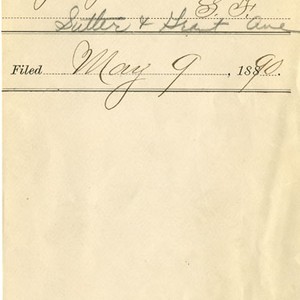 S. F.
Sutter & Grant Ave
Filed May 9, 1890.